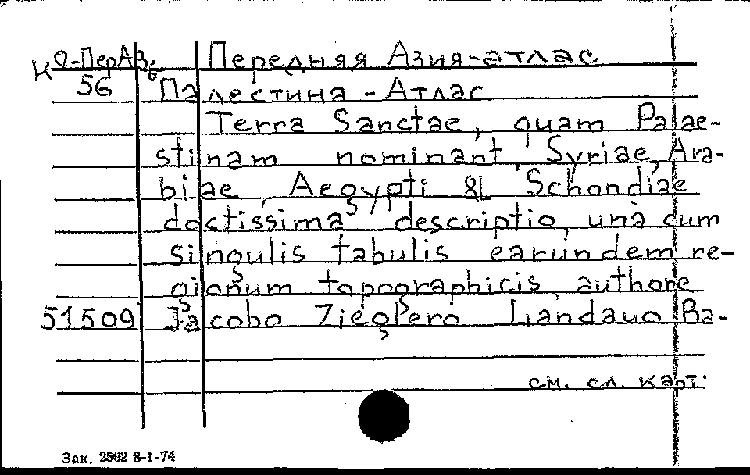 К О-ПерАз Передняя Азия-атлас
56 Палестина - Атлас
Terra Sanctae, quam Palae-
stinam nominant, Syriae, Ara-
biae, Aegypti & Schondiae
doctissima descriptio, unà cum
singulis tabulis earundem re-
gionum topographicis, authore
51509 Jacobo Zieglero Landauo Ba-
см. сл. карт.
Зак. 2562 8-I-74